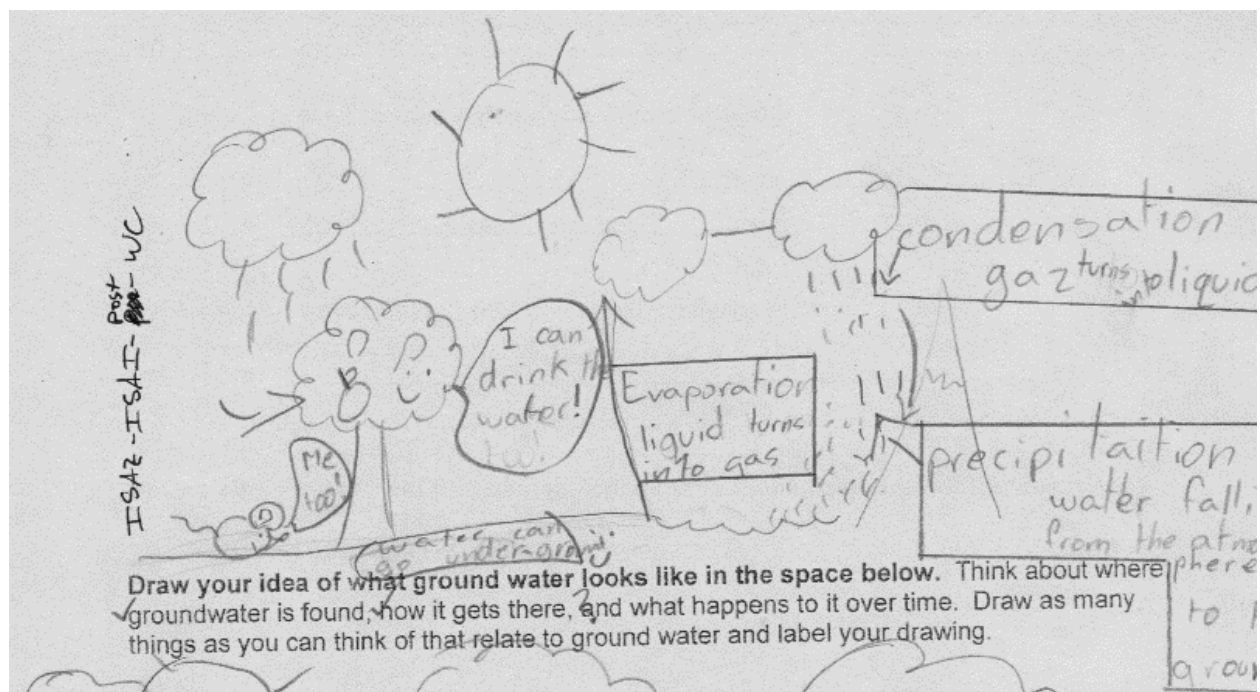 ISAZ-ISAI-Post-WC
condensation
gaz turns into liquid
I can
drink the
water!
too!
Evaporation
liquid turns
into gas
Me
too!
precipitaition
water fall
from the atmo
phere
to
groun
water can
go under-ground
Draw your idea of what ground water looks like in the space below. Think about where
groundwater is found, how it gets there, and what happens to it over time. Draw as many
things as you can think of that relate to ground water and label your drawing.